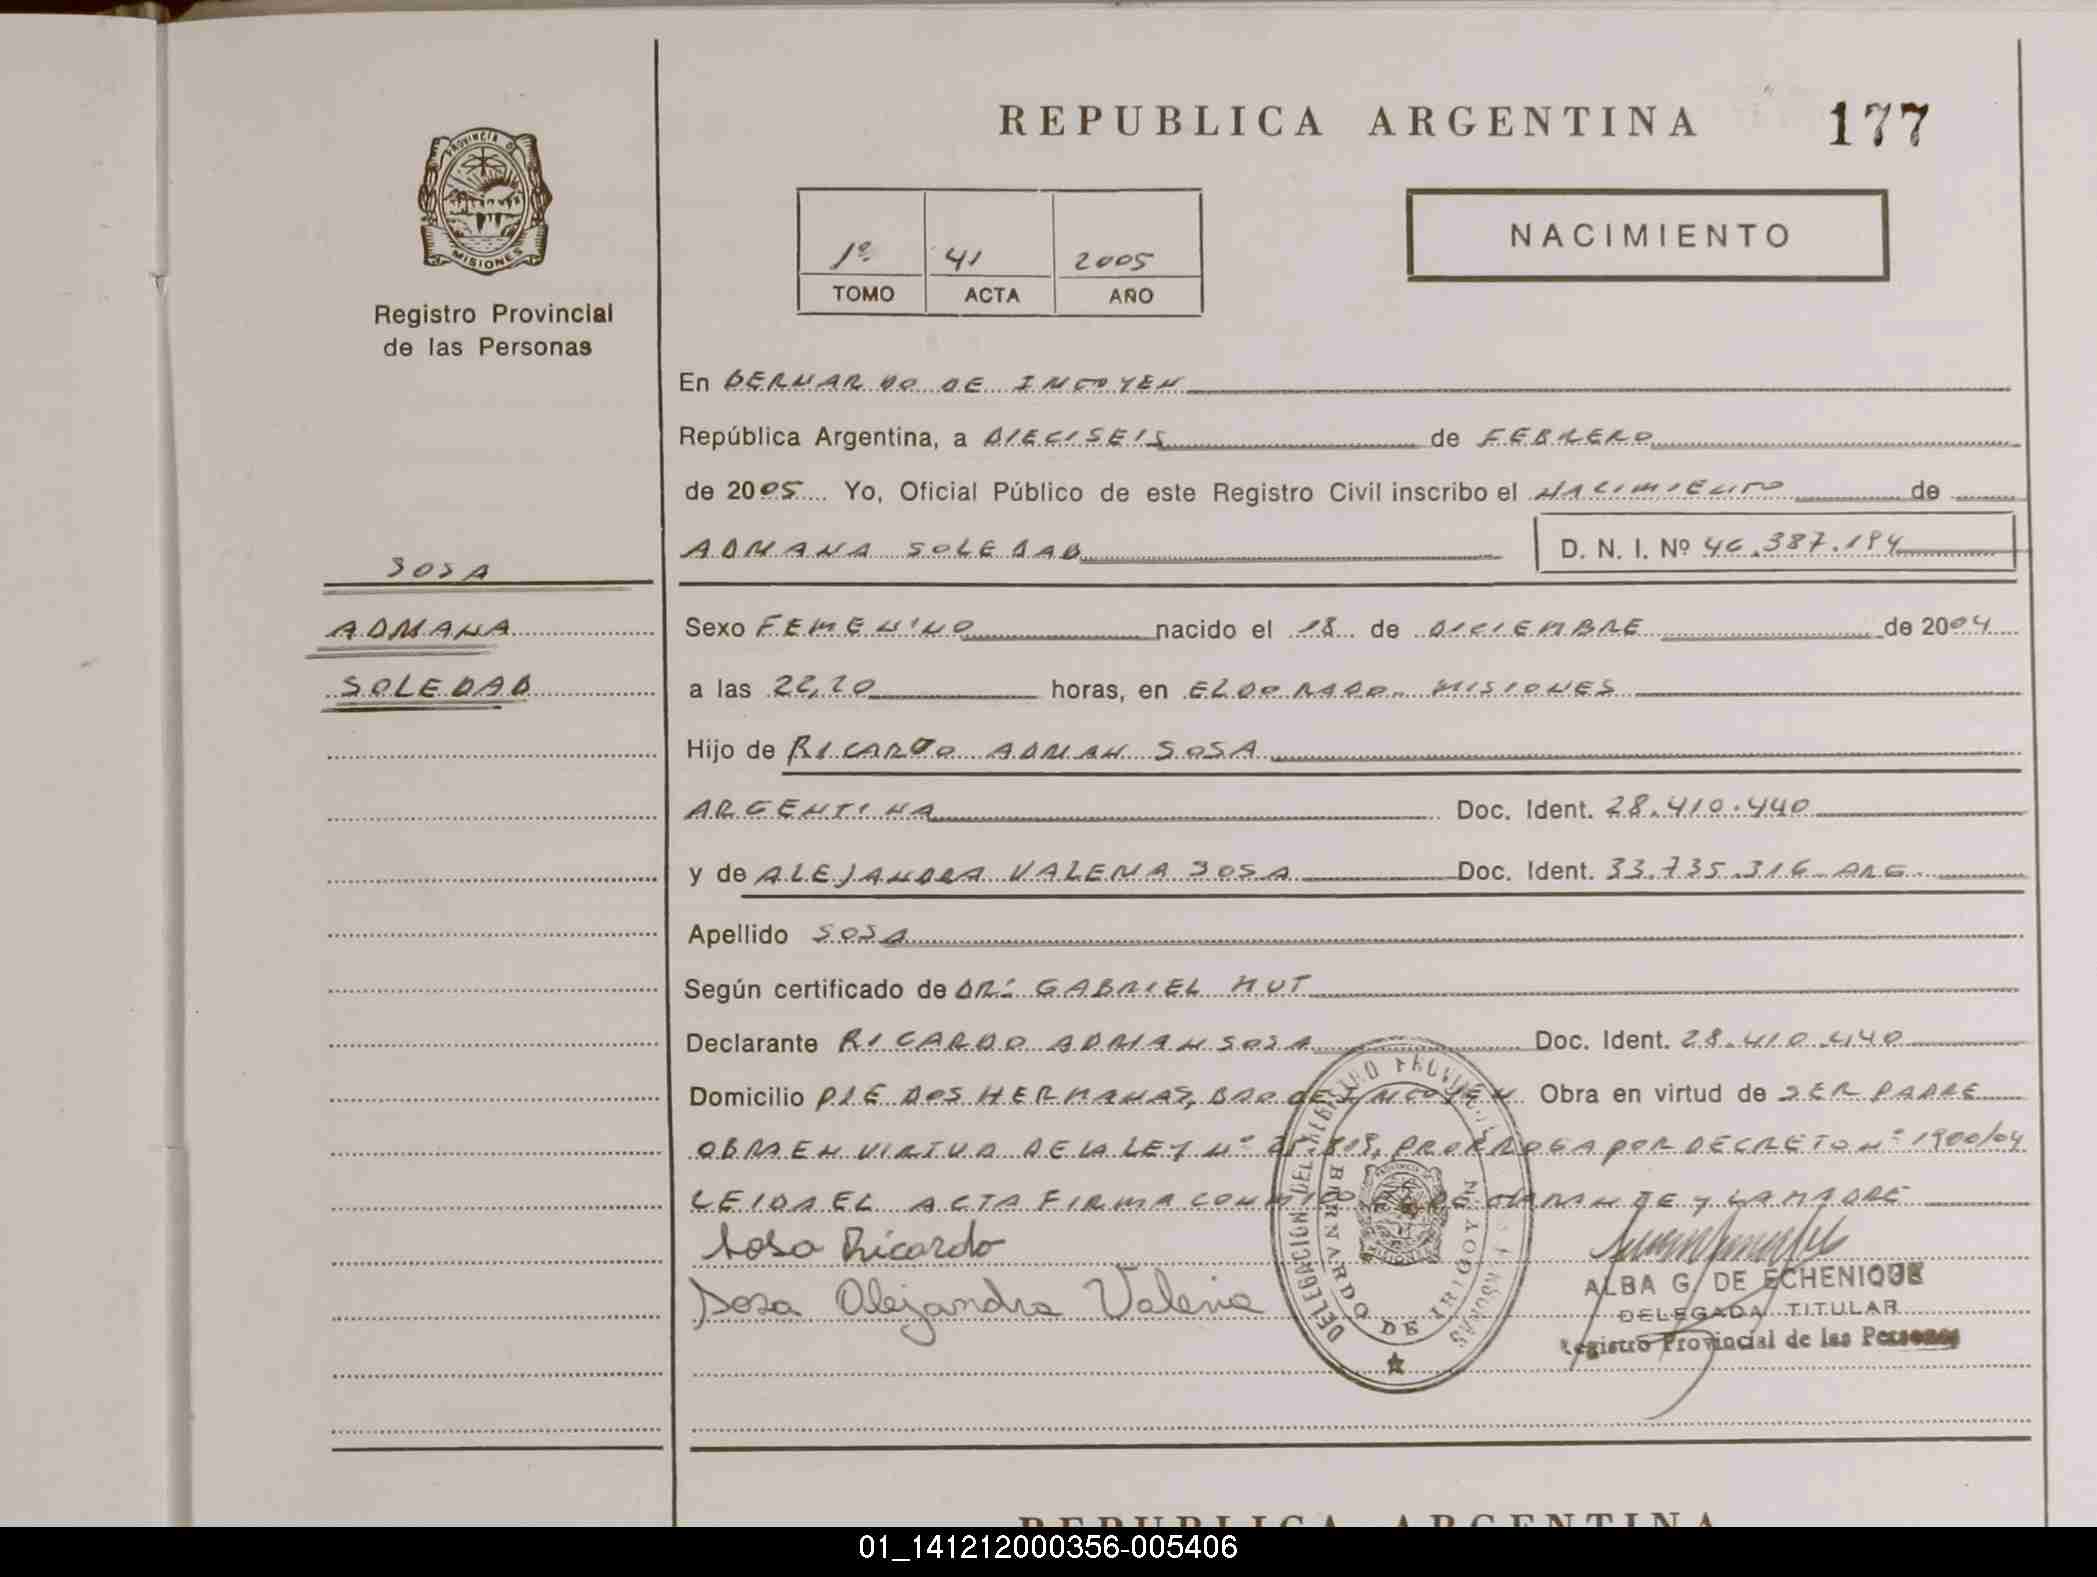 REPUBLICA ARGENTINA 177
PROVINCIA DE
MISIONES
Registro Provincial
de las Personas
1º 41 2005
TOMO ACTA AÑO
NACIMIENTO
En BERNARDO DE IRIGOYEN
República Argentina, a DIECISEIS de FEBRERO
de 2005 Yo, Oficial Público de este Registro Civil inscribo el NACIMIENTO de
ADRIANA SOLEDAD D. N. I. Nº 46.387.194
SOSA
ADRIANA
SOLEDAD
Sexo FEMENINO nacido el 18 de DICIEMBRE de 2004
a las 22,20 horas, en ELDORADO MISIONES
Hijo de RICARDO ADRIAN SOSA
ARGENTINA Doc. Ident. 28.410.440
y de ALEJANDRA VALERIA SOSA Doc. Ident. 33.735.316 ARG
Apellido SOSA
Según certificado de DR: GABRIEL HUT
Declarante RICARDO ADRIAN SOSA Doc. Ident. 28.410.440
Domicilio PJE DOS HERMANAS, BDO DE IRIGOYEN Obra en virtud de SER PADRE
OBRA EN VIRTUD DE LA LEY Nº 25.819, PRORROGA POR DECRETO Nº 1900/04
LEIDA EL ACTA FIRMA CONMIGO EL DECLARANTE Y LA MADRE
Sosa Ricardo
Sosa Alejandra Valeria
DELEGACION DEL REGISTRO PROVINCIAL DE LAS PERSONAS
BERNARDO DE IRIGOYEN
ALBA G. DE ECHENIQUE
DELEGADA TITULAR
Registro Provincial de las Personas
REPUBLICA ARGENTINA
01_141212000356-005406